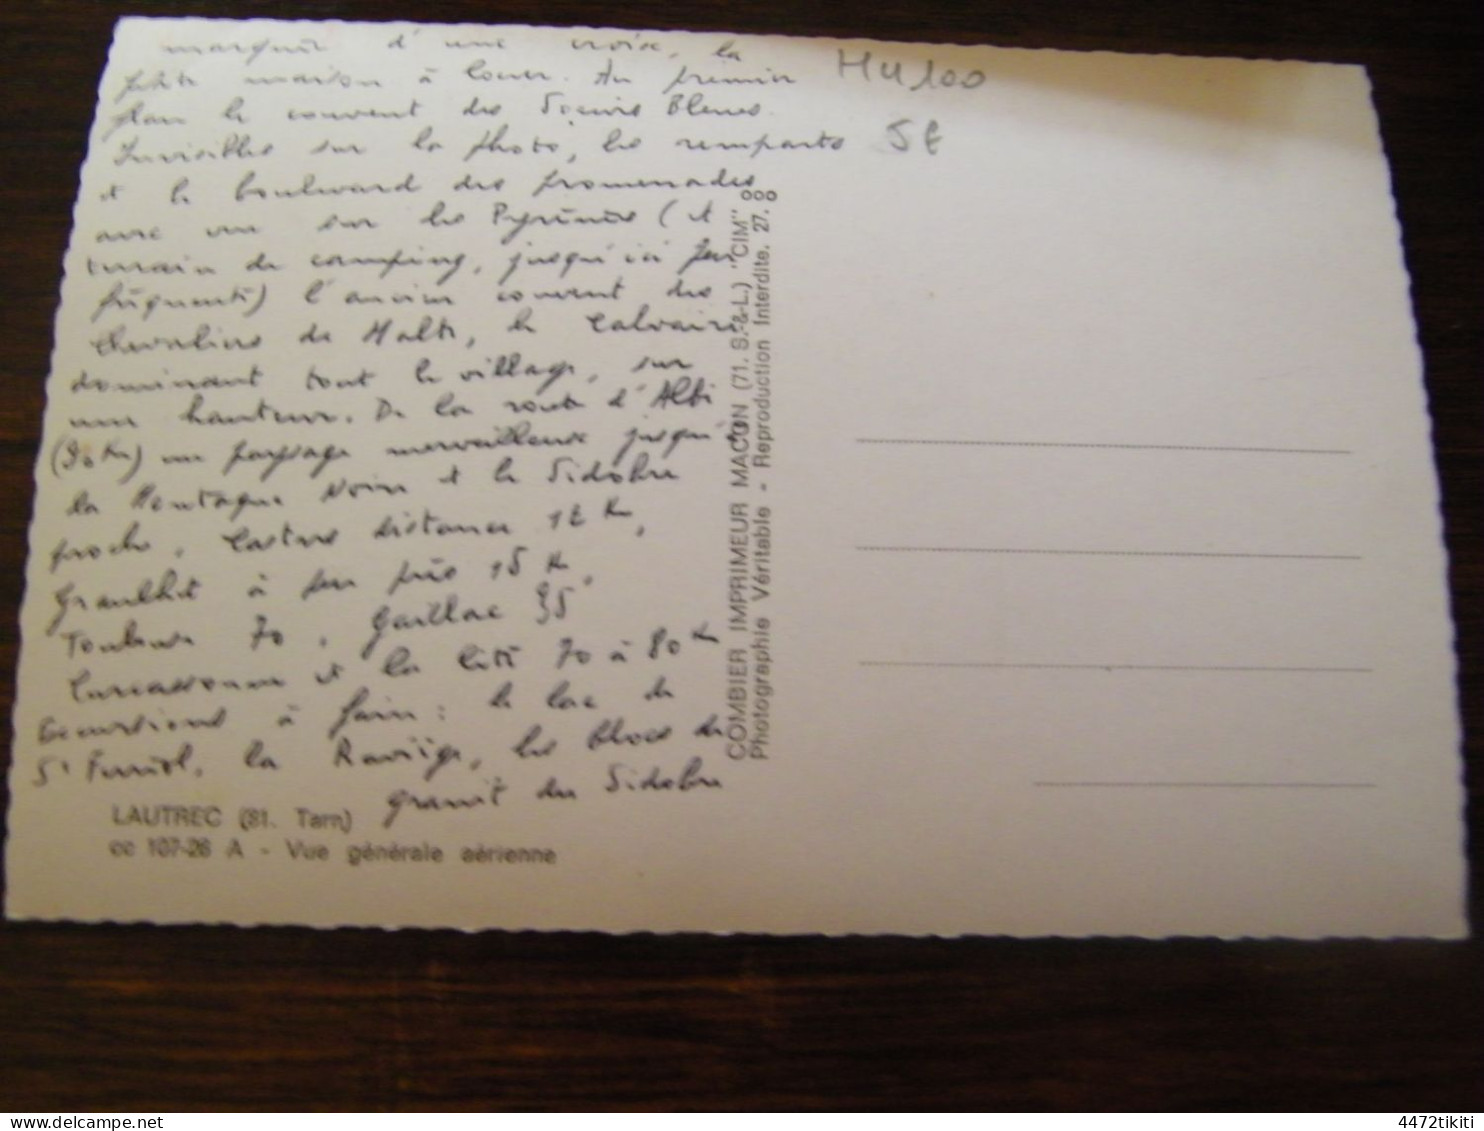 marquée d'une croix, la
petite maison à louer. Au premier
plan le couvent des Soeurs Bleues.
Invisibles sur la photo, les remparts
et le boulevard des promenades
avec vue sur les Pyrénées (et
terrain de camping, jusqu'ici peu
fréquenté) l'ancien couvent des
Chevaliers de Malte, le Calvaire
dominant tout le village, sur
une hauteur. De la route d'Albi
(30 km) un paysage merveilleux jusqu'à
la Montagne Noire et le Sidobre
proche, Castres distance 12 km,
Graulhet à peu près 15 km,
Toulouse 70, Gaillac 35
Carcassonne et la Cité 70 à 80 km
Excursions à faire : le lac de
St Ferréol, la Raviège, les blocs de
granit du Sidobre
LAUTREC (81. Tarn)
cc 107-26 A - Vue générale aérienne
COMBIER IMPRIMEUR MACON (71. S.-&-L.) "CIM"
Photographie Véritable - Reproduction Interdite. 27.
4472tikiti